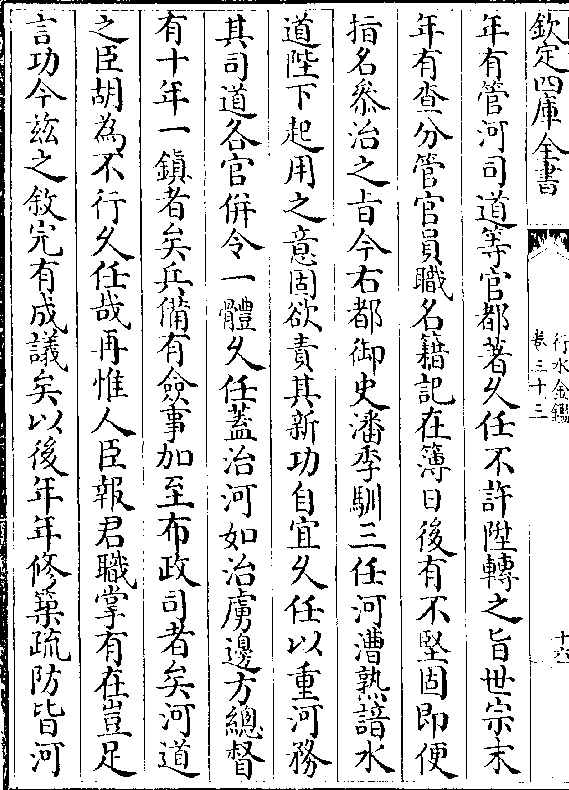 欽定四庫全書
行水金鑑
卷三十三
十六
年有管河司道等官都著久任不許陞轉之旨世宗末
年有查分管官員職名籍記在簿日後有不堅固即便
指名叅治之旨今右都御史潘季馴三任河漕熟諳水
道陛下起用之意固欲責其新功自宜久任以重河務
其司道各官併令一體久任蓋治河如治虜邊方總督
有十年一鎮者矣兵備有僉事加至布政司者矣河道
之臣胡為不行久任哉再惟人臣報君職掌有在豈足
言功今兹之敘完有成議矣以後年年修築疏防皆河